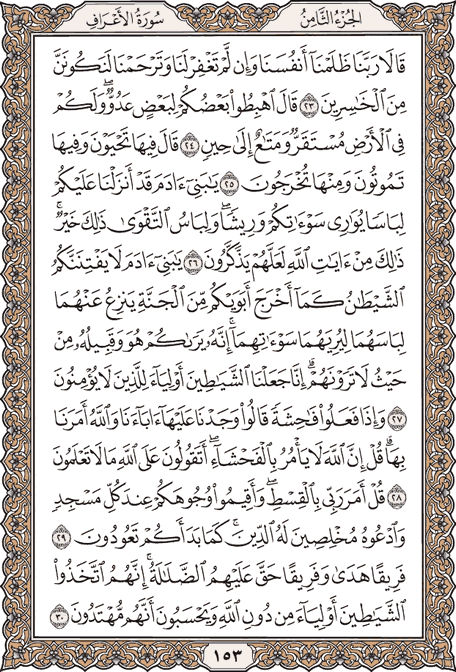 الجزء الثامن سورة الأعراف
قَالَا رَبَّنَا ظَلَمْنَآ أَنفُسَنَا وَإِن لَّمْ تَغْفِرْ لَنَا وَتَرْحَمْنَا لَنَكُونَنَّ
مِنَ ٱلْخَٰسِرِينَ ٢٣ قَالَ ٱهْبِطُوا۟ بَعْضُكُمْ لِبَعْضٍ عَدُوٌّ ۖ وَلَكُمْ
فِى ٱلْأَرْضِ مُسْتَقَرٌّ وَمَتَٰعٌ إِلَىٰ حِينٍ ٢٤ قَالَ فِيهَا تَحْيَوْنَ وَفِيهَا
تَمُوتُونَ وَمِنْهَا تُخْرَجُونَ ٢٥ يَٰبَنِىٓ ءَادَمَ قَدْ أَنزَلْنَا عَلَيْكُمْ
لِبَاسًا يُوَٰرِى سَوْءَٰتِكُمْ وَرِيشًا ۖ وَلِبَاسُ ٱلتَّقْوَىٰ ذَٰلِكَ خَيْرٌ ۚ
ذَٰلِكَ مِنْ ءَايَٰتِ ٱللَّهِ لَعَلَّهُمْ يَذَّكَّرُونَ ٢٦ يَٰبَنِىٓ ءَادَمَ لَا يَفْتِنَنَّكُمُ
ٱلشَّيْطَٰنُ كَمَآ أَخْرَجَ أَبَوَيْكُم مِّنَ ٱلْجَنَّةِ يَنزِعُ عَنْهُمَا
لِبَاسَهُمَا لِيُرِيَهُمَا سَوْءَٰتِهِمَآ ۗ إِنَّهُۥ يَرَىٰكُمْ هُوَ وَقَبِيلُهُۥ مِنْ
حَيْثُ لَا تَرَوْنَهُمْ ۗ إِنَّا جَعَلْنَا ٱلشَّيَٰطِينَ أَوْلِيَآءَ لِلَّذِينَ لَا يُؤْمِنُونَ
٢٧ وَإِذَا فَعَلُوا۟ فَٰحِشَةً قَالُوا۟ وَجَدْنَا عَلَيْهَآ ءَابَآءَنَا وَٱللَّهُ أَمَرَنَا
بِهَا ۗ قُلْ إِنَّ ٱللَّهَ لَا يَأْمُرُ بِٱلْفَحْشَآءِ ۖ أَتَقُولُونَ عَلَى ٱللَّهِ مَا لَا تَعْلَمُونَ
٢٨ قُلْ أَمَرَ رَبِّى بِٱلْقِسْطِ ۖ وَأَقِيمُوا۟ وُجُوهَكُمْ عِندَ كُلِّ مَسْجِدٍ
وَٱدْعُوهُ مُخْلِصِينَ لَهُ ٱلدِّينَ ۚ كَمَا بَدَأَكُمْ تَعُودُونَ ٢٩
فَرِيقًا هَدَىٰ وَفَرِيقًا حَقَّ عَلَيْهِمُ ٱلضَّلَٰلَةُ ۗ إِنَّهُمُ ٱتَّخَذُوا۟
ٱلشَّيَٰطِينَ أَوْلِيَآءَ مِن دُونِ ٱللَّهِ وَيَحْسَبُونَ أَنَّهُم مُّهْتَدُونَ ٣٠
١٥٣